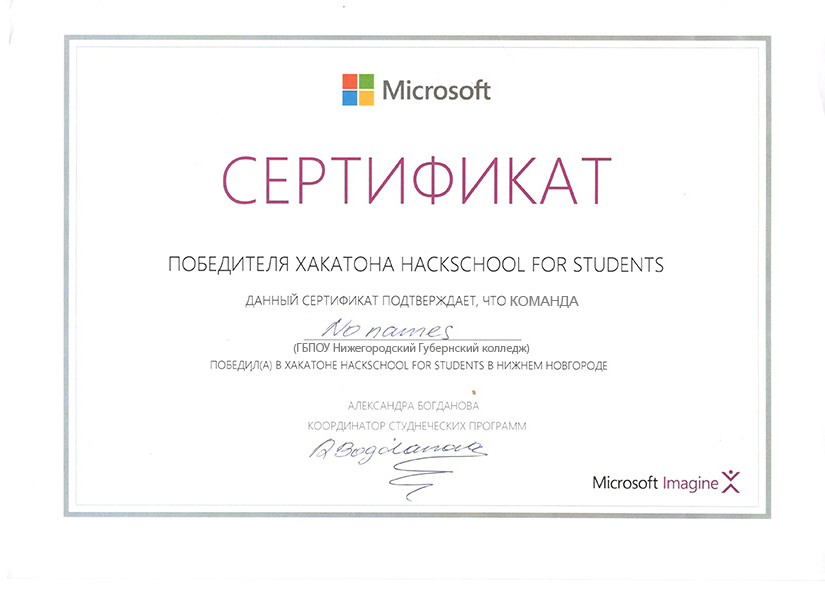 Microsoft
СЕРТИФИКАТ
ПОБЕДИТЕЛЯ ХАКАТОНА HACKSCHOOL FOR STUDENTS
ДАННЫЙ СЕРТИФИКАТ ПОДТВЕРЖДАЕТ, ЧТО КОМАНДА
No names
(ГБПОУ Нижегородский Губернский колледж)
ПОБЕДИЛ(А) В ХАКАТОНЕ HACKSCHOOL FOR STUDENTS В НИЖНЕМ НОВГОРОДЕ
АЛЕКСАНДРА БОГДАНОВА
КООРДИНАТОР СТУДНЕЧЕСКИХ ПРОГРАММ
ABogdanova
Microsoft Imagine